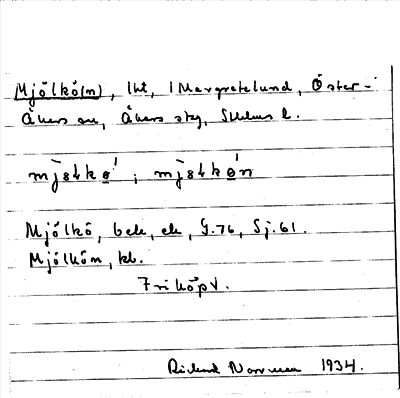 Mjölkö(n), lht, 1 Margretelund, Öster-
Åkers sn, Åkers skg, Sthlms l.
Mjölkö, bek, ek, G.76, Sj.61.
Mjölkön, kb.
Friköpt.
Rickard Norrman 1934.